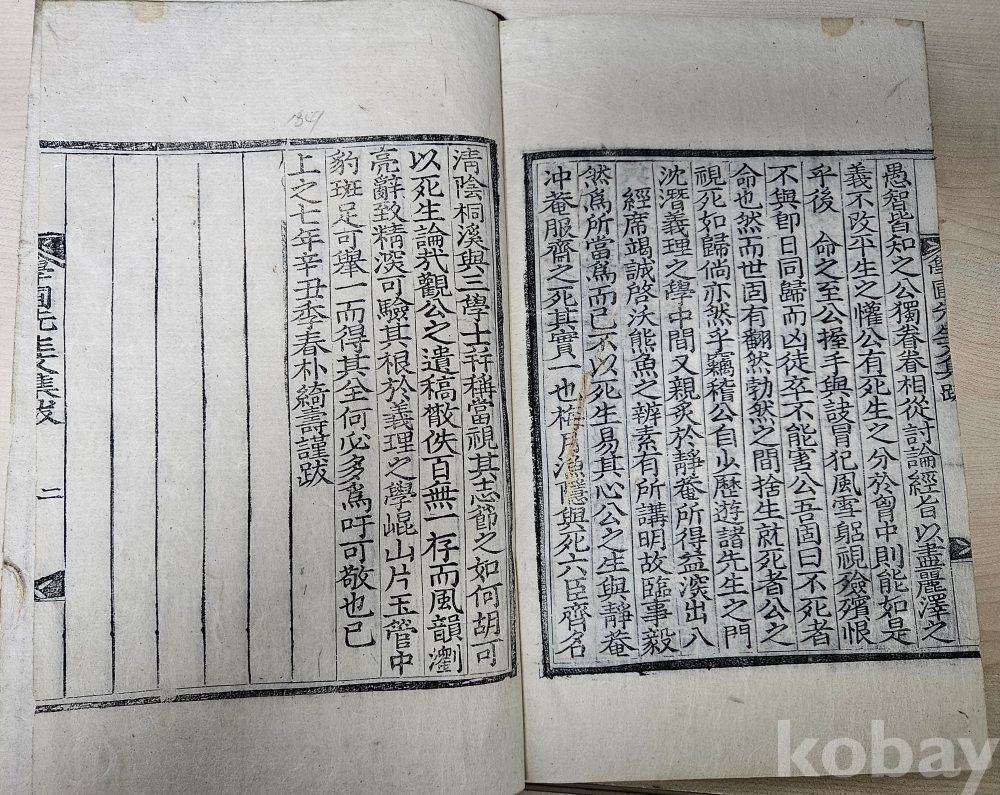 愚智皆知之公獨眷眷相從討論經旨以盡麗澤之
義不改平生之懽公有死生之分於胷中則能如是
乎後 命之至公握手與訣冒犯風雪躬視殮殯恨
不與卽日同歸而凶徒卒不能害公吾固曰不死者
命也然而世固有翻然勃然之間捨生就死者公之
視死如歸倘亦然乎竊稽公自少歷遊諸先生之門
沈潛義理之學中間又親炙於靜菴所得益深出入
經席竭誠啓沃熊魚之辨素有所講明故臨事毅
然爲所當爲而已不以死生易其心公之生與靜菴
冲菴服齊之死其實一也梅月漁隱與死六臣齊名
淸陰桐溪與三學士幷稱當視其志節之如何胡可
以死生論㢤觀公之遺稿散佚百無一存而風韻瀏
亮辭致精深可驗其根於義理之學崐山片玉管中
豹斑足可擧一而得其全何必多爲吁可敬也已
上之七年辛丑季春朴綺壽謹跋
先生文集跋
二
1841
kobay